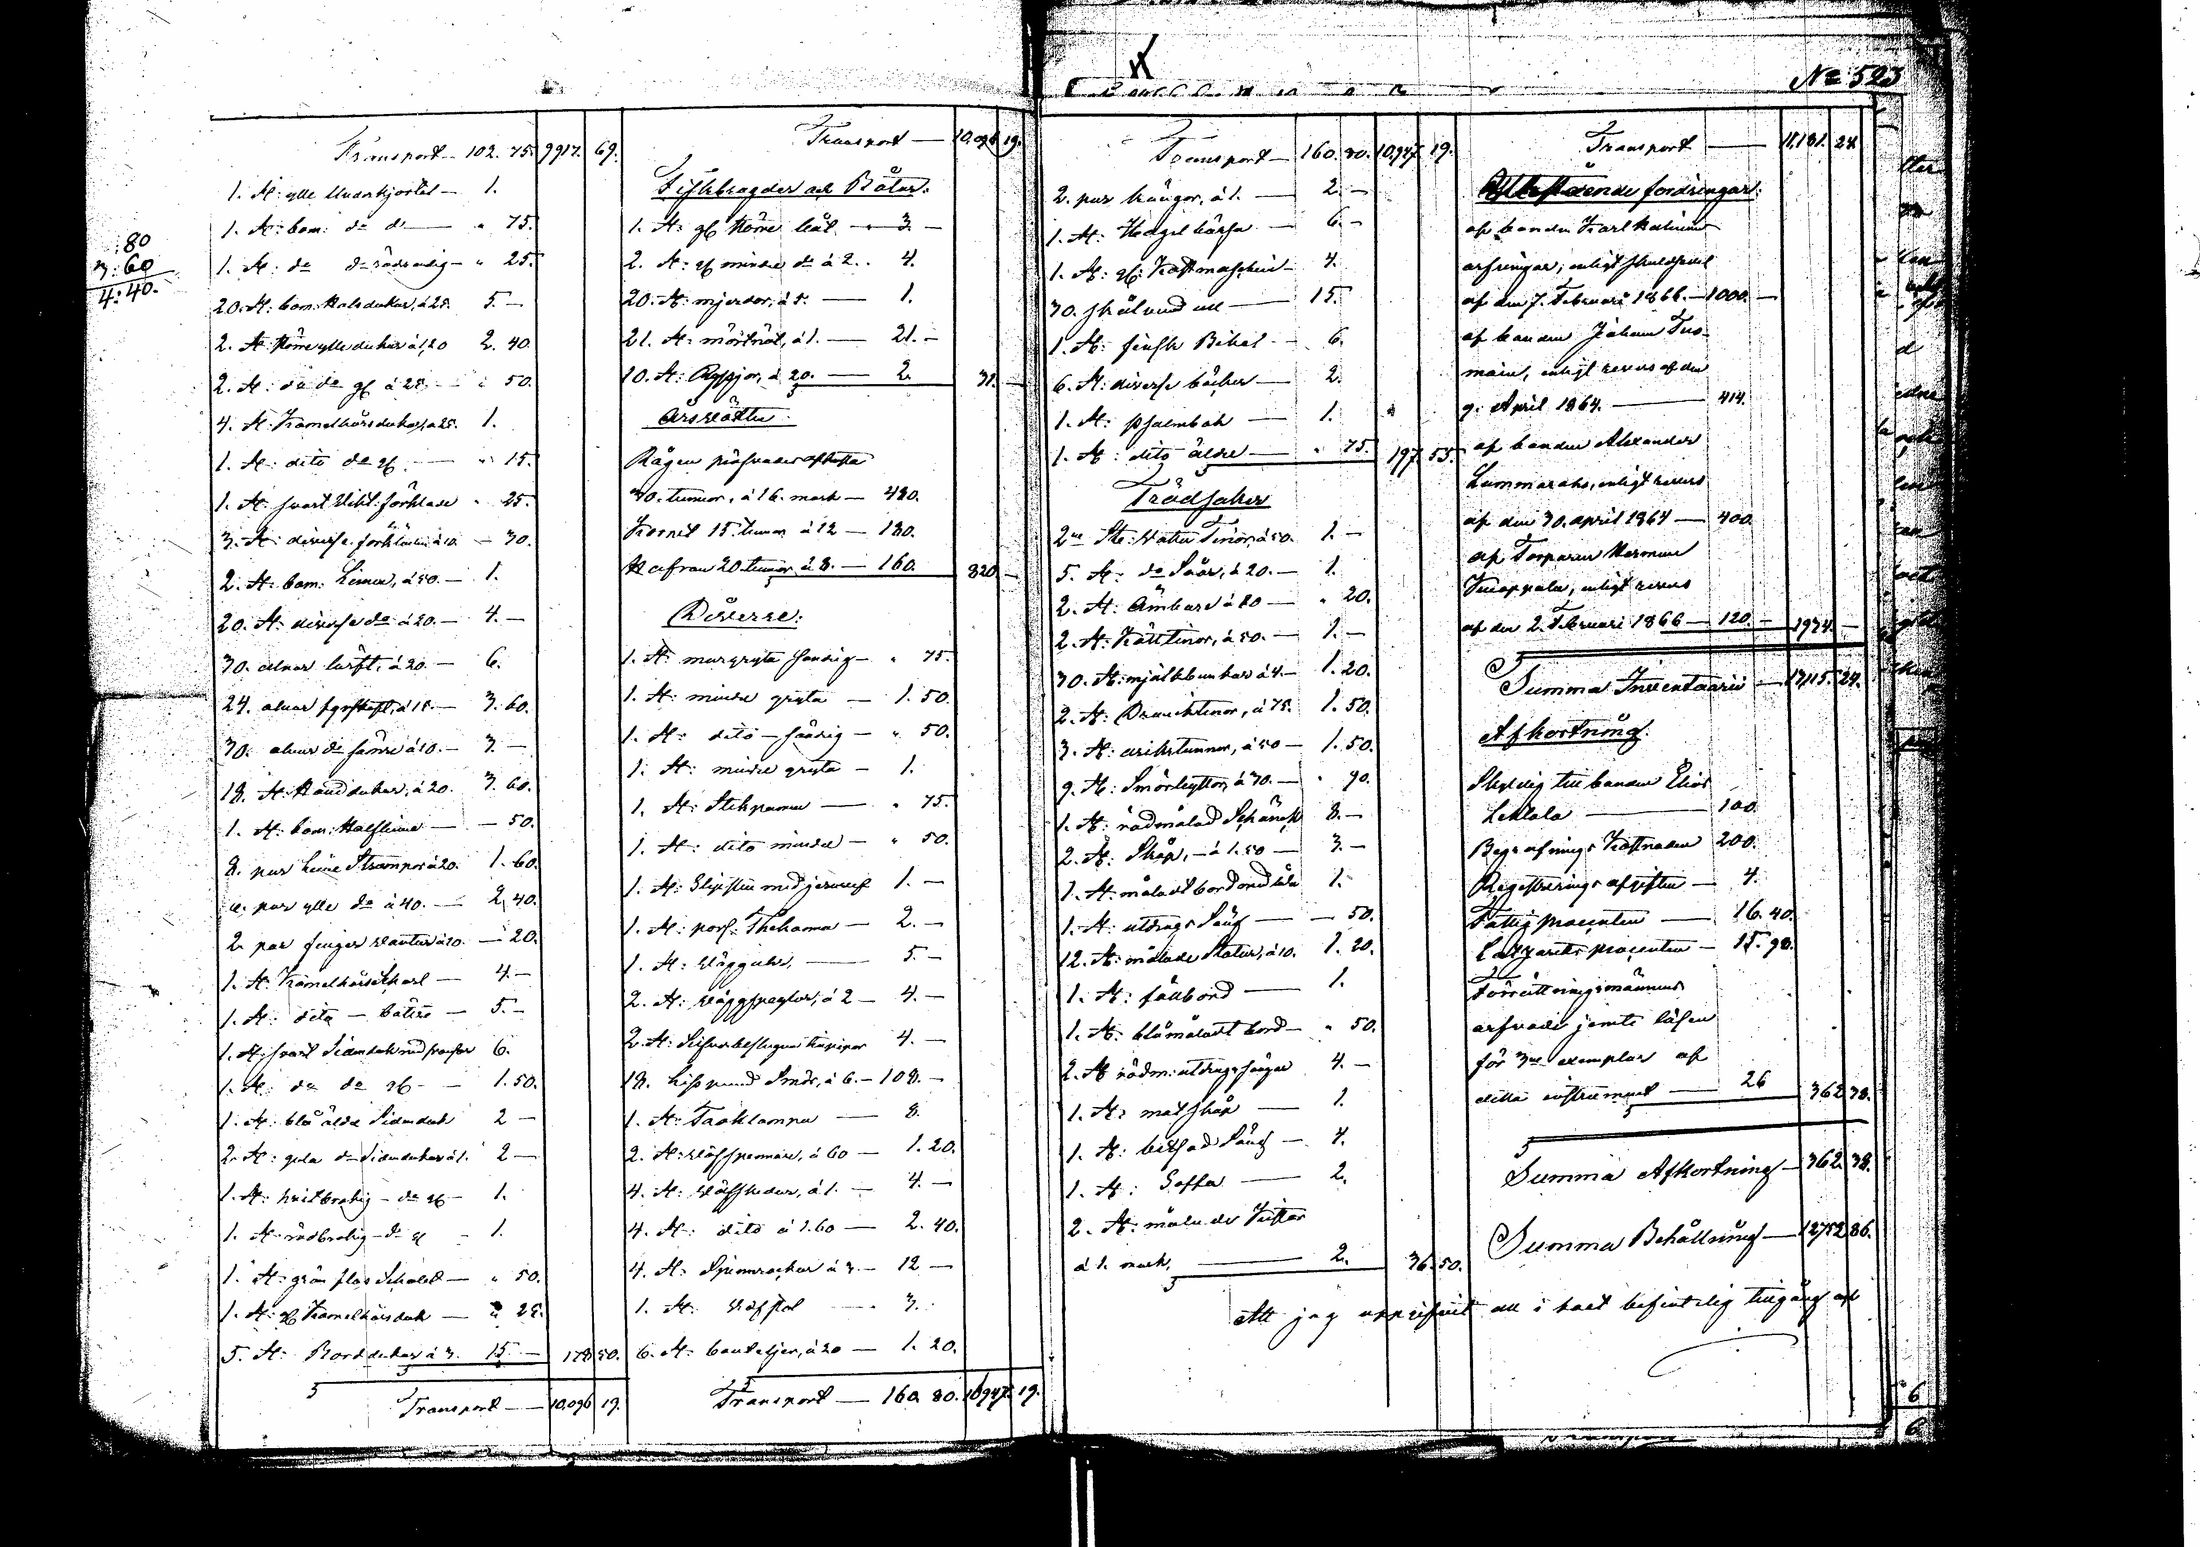 80
3:60
4:40.
Transport — 102. 75. 9917. 69.
1. St: ylle Underkjortel — 1.
1. St: bom: do do — " 75.
1. St: do do rödrandig — " 25.
20. St: bom: Halsdukar, à 25. 5. —
2. St: större ylle dukar à 1,20 2. 40.
2. St: do do gl à 25. — " 50.
4. St: Kamelhårsdukar, à 25. 1.
1. St: dito do gl. — " 15.
1. St: svart förkläde " 25.
3. St: diverse förkläden à 10. — 30.
2. St: bom: Linnen, à 50. — 1.
20. St: diverse do à 20. — 4. —
30. alnar lärft, à 20. — 6.
24. alnar à 15. — 3. 60.
30. alnar do sämre à 10. — 3. —
18. St: Handdukar, à 20. 3. 60.
1. St: bom: — 50.
8. par Linne Strumpor à 20. 1. 60.
6. par ylle do à 40. — 2. 40.
2. par finger vantar à 10. — 20.
1. St: Kamelhårs Schal — 4. —
1. St: dito — bättre — 5. —
1. St: svart Sidenduk med fransar 6.
1. St: do do gl — 1. 50.
1. St: blå äldre Sidenduk 2 —
2. St: gula do Sidendukar à 1. 2 —
1. St: hvitbrokig — do gl — 1.
1. St: rödbrokig — do gl — 1.
1. St: grön Schalet — " 50.
1. St: gl Kamelhårsduk — " 25.
5. St: Borddukar à 3. 15 — 178 50.
Transport — 10.096 19.
Transport — 10.096 19.
Fiskbragder och Båtar.
1. St: gl större båt — 3. —
2. St: gl mindre do à 2. . 4.
20. St: mjerdor, à 5. — 1.
21. St: mörtnät, à 1. — 21. —
10. St: Ryssjor, à 20. — 2. 31. —
Årsväxten
Rågen
30. tunnor, à 16. mark — 480.
Kornet 15. tunnor à 12 — 180.
Hafran 20. tunnor à 8. — 160. 820. —
Diverse.
1. St: murgryta sandig — " 75.
1. St: mindre gryta — 1. 50.
1. St: dito — — " 50.
1. St: mindre gryta — 1.
1. St: Stekpanna — " 75.
1. St: dito mindre — " 50.
1. St: Slipsten med 1. —
1. St: porsl: Thekanna — 2. —
1. St: väggur, — 5. —
2. St: väggspeglar, à 2 — 4. —
2. St: Silfverbeslagna 4. —
18. Lispund Smör, à 6. — 108. —
1. St: Taklampa — 8.
2. St: à 60 — 1. 20.
4. St: Väfskedar, à 1. — 4. —
4. St: dito à 1.60 — 2. 40.
4. St: Spinnrockar à 3. — 12 —
1. St: Väfstol — 3.
6. St: bouteljer, à 20 — 1. 20.
Transport — 160. 80. 10947. 19.
No 523
Transport — 160. 80. 10,947. 19.
2. par hängor, à 1. — 2. —
1. St: Hagelbössa — 6. —
1. St: gl: Kastmaschin — 4.
30. skålpund ull — 15.
1. St: finsk Bibel — 6.
6. St: diverse böcker — 2.
1. St: psalmbok — 1.
1. St: dito äldre — " 75. 197. 55.
Trädsaker
2ne St: Vatten Tinor, à 50. 1. —
5. St: do Såar, à 20. — 1.
2. St: Ämbare à 10 — " 20.
2. St: Kätttinor, à 50. — 1. —
30. St: mjölkbunkar à 4. — 1. 20.
2. St: Dricktinor, à 75. 1. 50.
3. St: tunnor, à 50 — 1. 50.
9. St: Smörbyttor, à 10. — " 90.
1. St: rödmålad Schänck 8. —
2. St: Skåp, — à 1.50 — 3. —
1. St: måladt bord med låda 1.
1. St: utdrags Säng — — 50.
12. St: målade Stolar, à 10. 1. 20.
1. St: fällbord — 1.
1. St: blåmåladt bord — " 50.
2. St: rödm: utdrags sängar 4. —
1. St: matskåp — 1.
1. St: betsad Säng — 4.
1. St: Soffa — 2.
2. St: målade Kistor
à 1. mark. — 2. 36. 50.
Transport — 11,181. 24.
Utestående fordringar.
af bonden Karl
arfvingar, enligt skuldsedel
af den 7. Februari 1866. — 1000. —
af bonden Johan
enligt revers af den
9. April 1864. — 414.
af bonden Alexander
enligt revers
af den 30. april 1864 — 400.
af Torparen Herman
Knappala, enligt revers
af den 2. Februari 1866 — 120. — 1934. —
Summa Inventarii — 13115. 24.
Afkortning.
Skyldig till bonden Elias
Lektala — 100.
Begrafnings Kostnaden 200.
Registrerings afgiften — 4.
Fattig procenten — 16. 40.
Lazaretts procenten — 15. 98.
Förrättningsmännens
arfvode jemte lösen
för 3ne exemplar af
detta instrument — 26 362. 38.
Summa Afkortning — 362. 38.
Summa Behållning — 12752. 86.
Att jag uppgifvit all i boet befintelig tillgång af